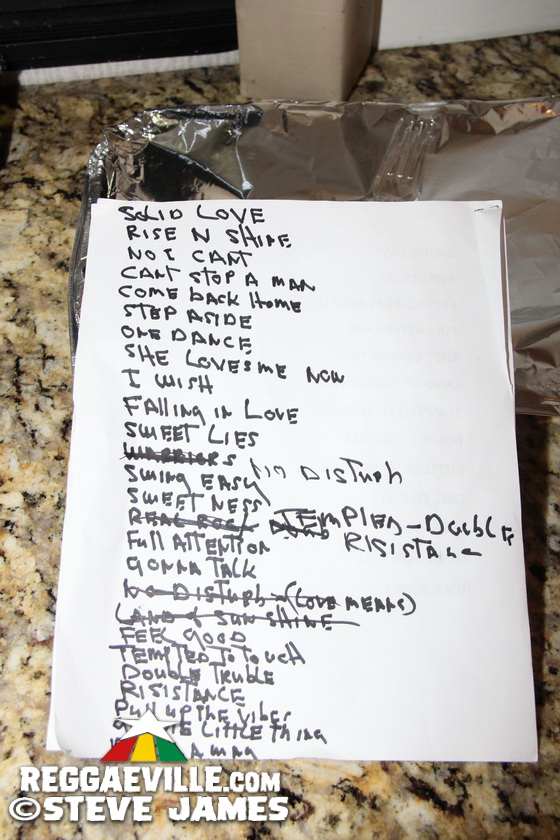 SOLID LOVE
RISE N SHINE
NO I CANT
CANT STOP A MAN
COME BACK HOME
STEP ASIDE
ONE DANCE
SHE LOVES ME NOW
I WISH
FALLING IN LOVE
SWEET LIES
WARRIORS
SWING EASY NO DISTURB
SWEETNESS
REAL ROCK TEMPTED-DOUBLE
FULL ATTENTION RISISTANCE
GONNA TALK
NO DISTURB (LOVE MEANS)
LAND & SUN SHINE
FEEL GOOD
TEMPTED TO TOUCH
DOUBLE TRUBLE
RISISTANCE
PULL UP THE VIBES
LITTLE THING
A MAN
REGGAEVILLE.COM
©STEVE JAMES